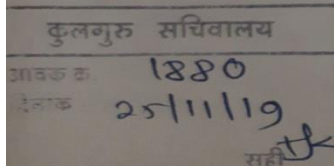 कुलगुरु सचिवालय
आवक क. 1880
दिनांक 25/11/19
सही